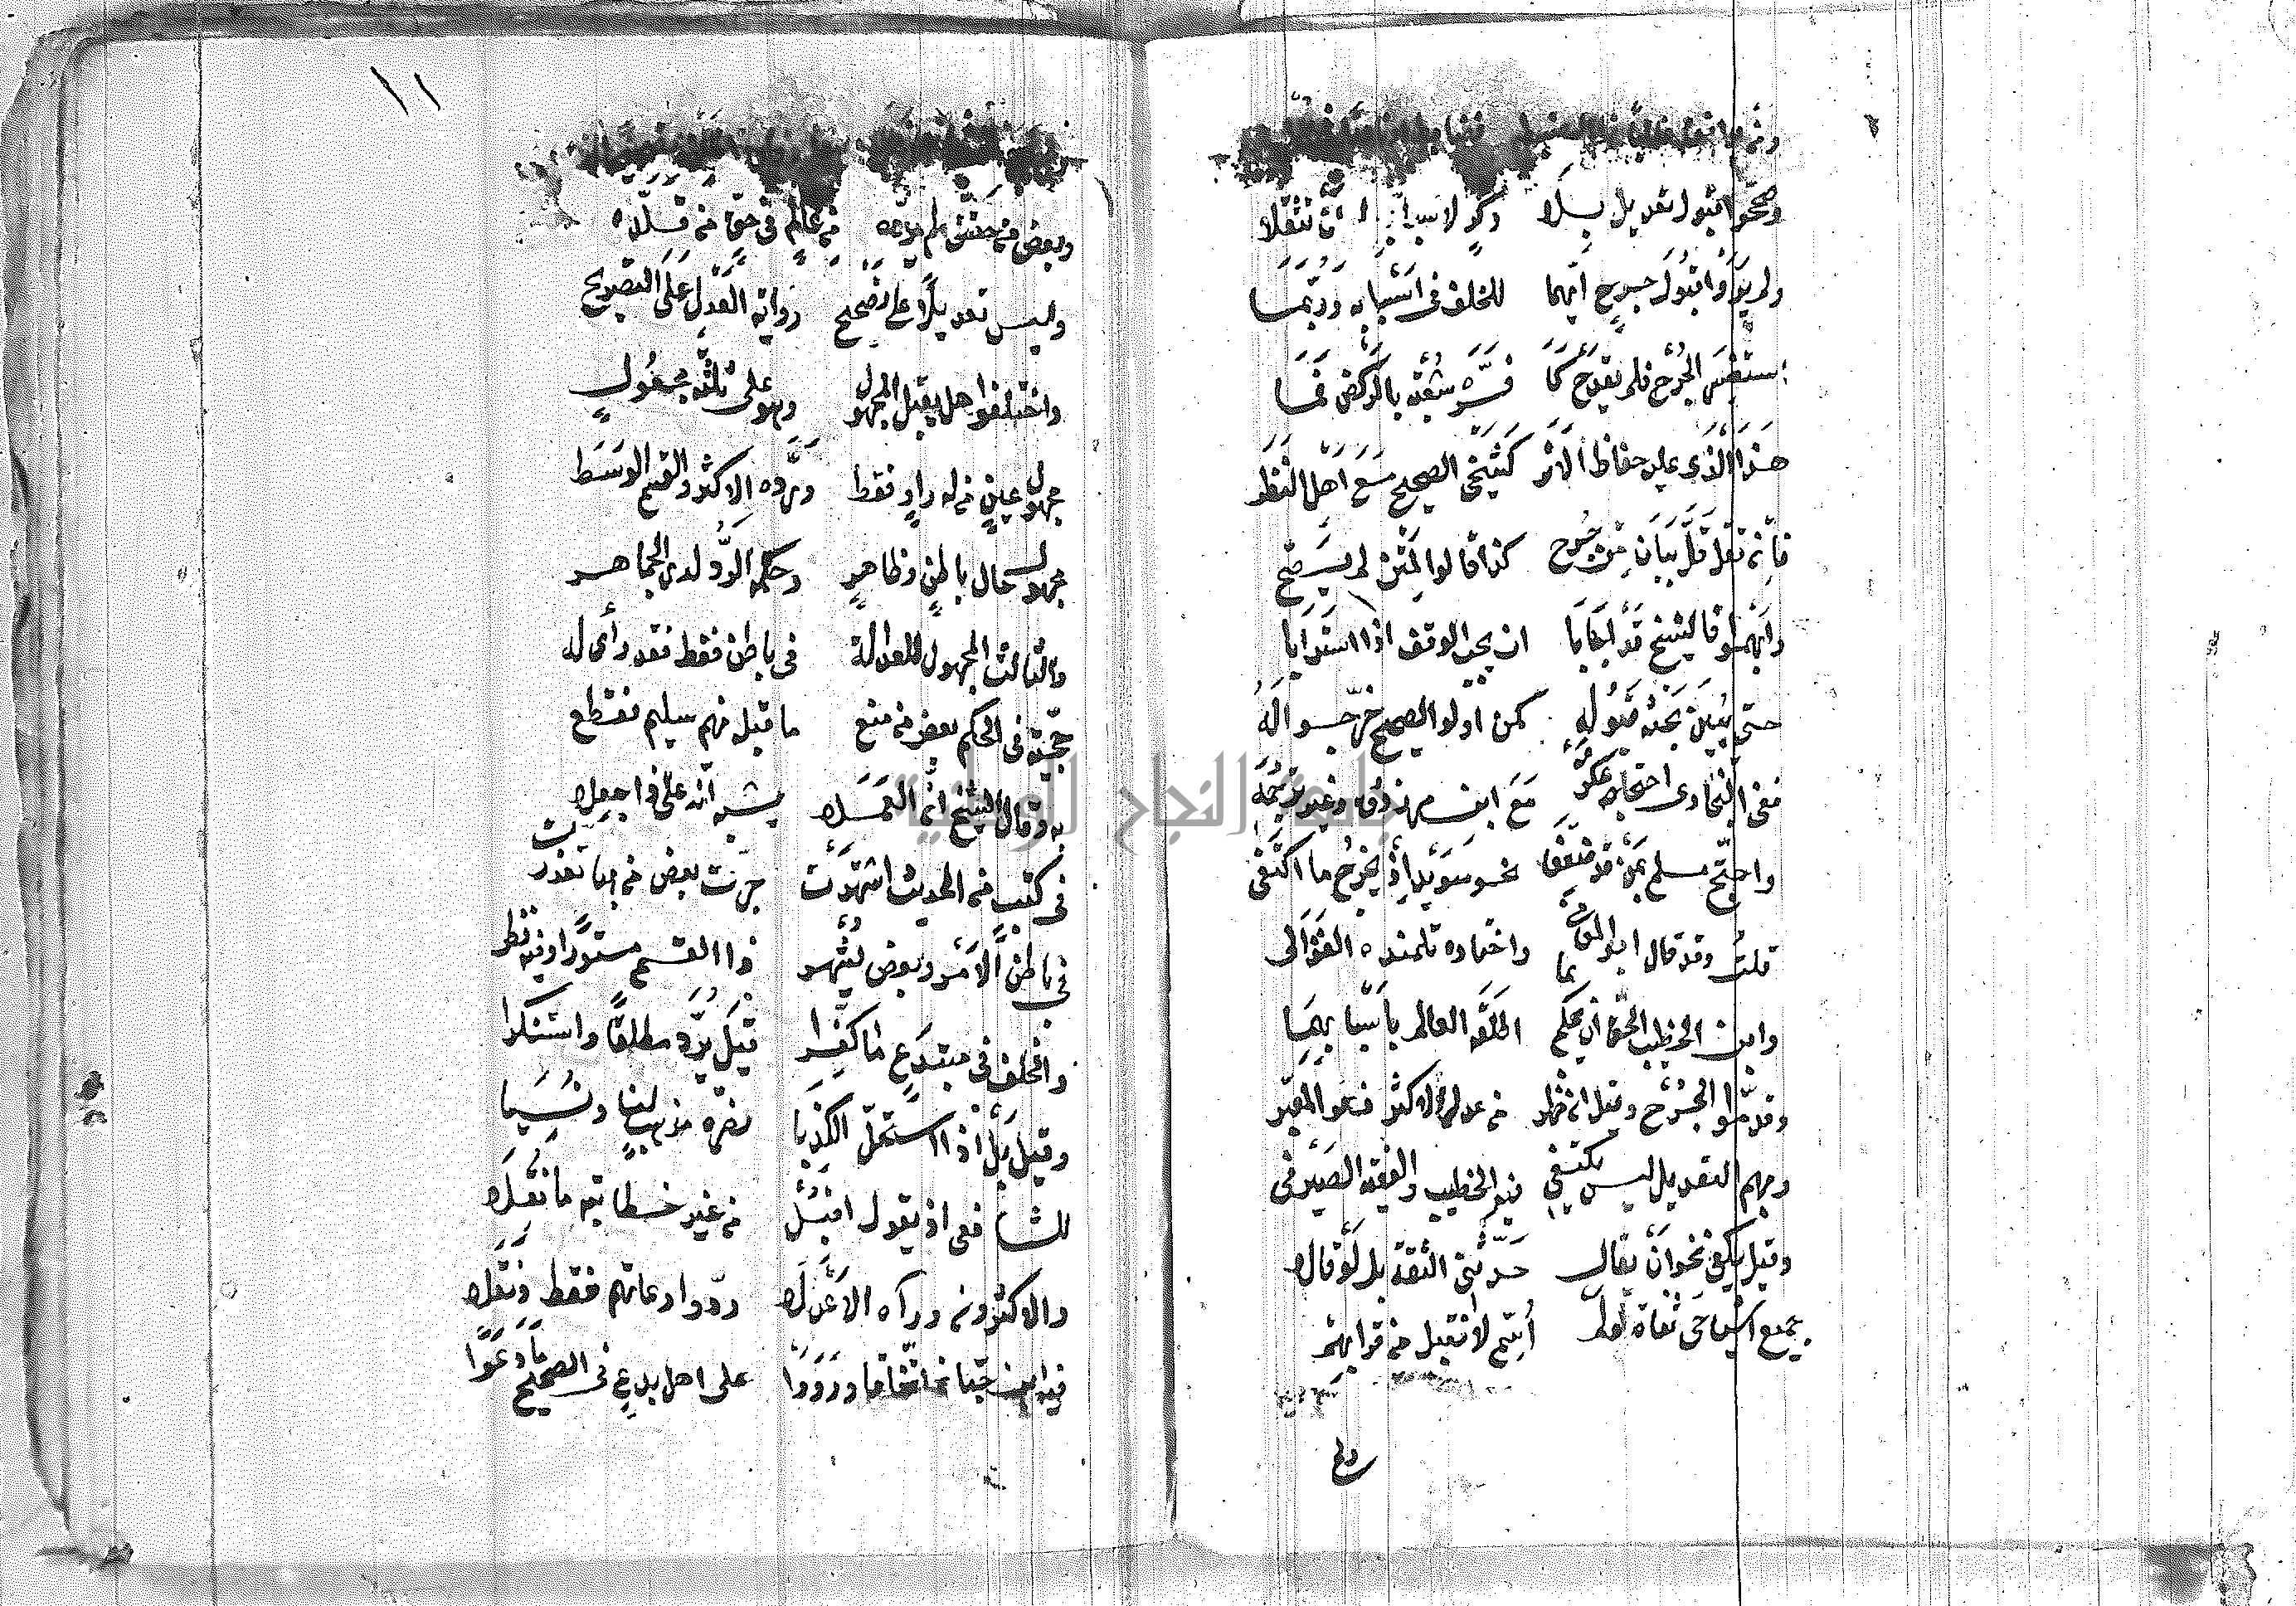 ومن وافق غالبا
وصححوا قبول تعديل بلا ذكر لاسباب له ان تثقلا
ولم يروا قبول جرح ابهما للخلف في اسبابه وربما
استفسر الجرح فلم يقدح كما فسره شعبة بالركض فما
هذا الذي عليه حفاظ الاثر كشيخي الصحيح مع اهل النظر
فان يقل قل بيان من جرح كذا قالوا لمتن لم يصح
وابهموا فالشيخ قد اجابا ان يجب الوقف اذا استرابا
حتى يبين بحثه قبوله كمن اولو الصحيح خرجوا له
ففي البخاري احتجاجا عكرمة مع ابن مرزوق وغير ترجمة
واحتج مسلم بمن قد ضعفا نحو سويد اذ بجرح ما اكتفى
قلت وقد قال ابو المعالي واختاره تلميذه الغزالي
وابن الخطيب الحق ان يحكم بما اطلقه العالم باسبابهما
وقدموا الجرح وقيل ان ظهر من عدل الاكثر فهو المعتبر
ومبهم التعديل ليس يكتفي به الخطيب والفقيه الصيرفي
وقيل يكفي نحو ان يقالا حدثني الثقة بل لو قالا
جميع اشياخي ثقات لو لم اسم لا نقبل من قد ابهم
ولم
١١
وبعض من حقق لم يرده من عالم في حق من قلده
وليس تعديلا على الصحيح رواية العدل على التصريح
واختلفوا هل يقبل المجهول وهو على ثلثة مجعول
مجهول عين من له راو فقط ورده الاكثر والقسم الوسط
مجهول حال باطن وظاهر وحكمه الرد لدى الجماهر
والثالث المجهول للعدالة في باطن فقط فقد رأى له
حجية في الحكم بعض من منع ما قبله منهم سليم فقطع
به وقال الشيخ ان العملا يشبه انه على ذا جعلا
في كتب من الحديث اشتهرت خبرة بعض من بها تعذرت
في باطن الامر وبعض يشهر ذا القسم مستورا وفيه نظر
والخلف في مبتدع ما كفرا قيل يرد مطلقا واستنكرا
وقيل بل اذا استحل الكذبا نصرة مذهب له ونسبا
للشافعي اذ يقول اقبل من غير خطابية ما نقلوا
والاكثرون وراه الاعدلا ردوا دعاتهم فقط ونقلا
فيه ابن حبان اتفاقا ورووا عن اهل بدع في الصحيح ما دعوا
جامعة النجاح الوطنية